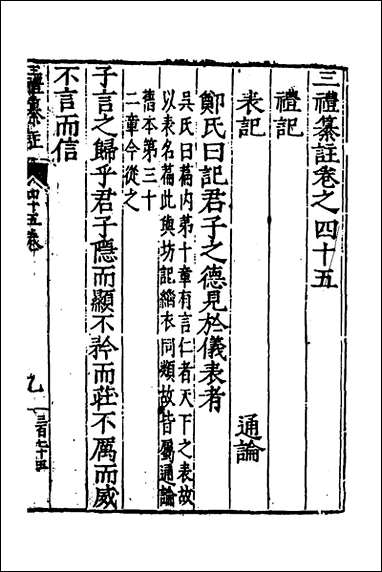 三禮纂註卷之四十五
禮記
表記 通論
鄭氏曰記君子之德見於儀表者
吳氏曰篇内第十章有言仁者天下之表故
以表名篇此與坊記緇衣同類故皆屬通論
舊本第三十
二章今從之
子言之歸乎君子隱而顯不矜而莊不厲而威
不言而信
三禮纂註
四十五卷